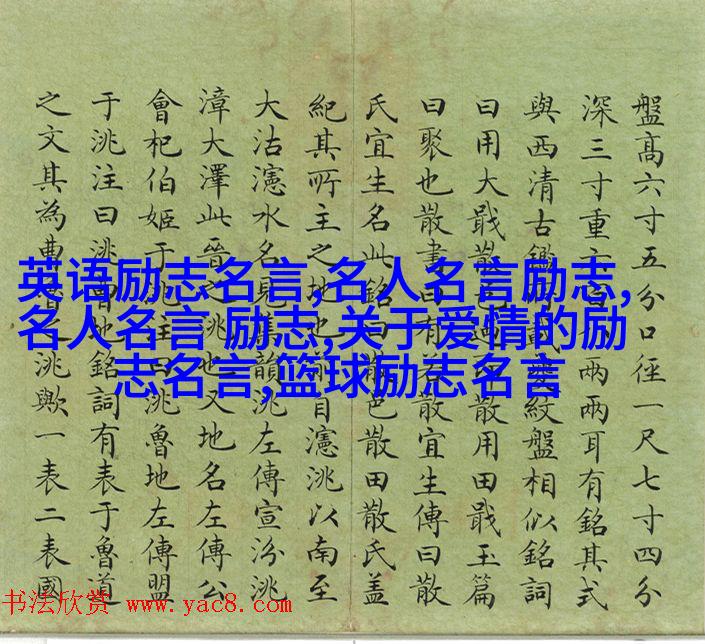 英语励志名言,名人名言励志,
名人名言 励志,关于爱情的励
志名言,篮球励志名言
盤高六寸五分口徑一尺七寸四分
深三寸重兩兩耳有銘其式
與西清古鑑載夔紋盤相似銘詞
曰用大戢散散用田戢玉篇
曰聚也散書曰有若散宜生傳曰散
氏宜生名此銘曰散邑散田散氏盖
紀其所主之地也目瀗洮以南至
大沽瀗水名見集韻洮左傳宣汾洮
漳大澤此晉之洮也又地名左傳公
會杞伯姬于洮注曰洮魯地左傳盟
于洮注曰洮曹地銘詞有表于魯道
之文其為曹魯之洮歟一表二表國
书法欣赏 www.yac8.com